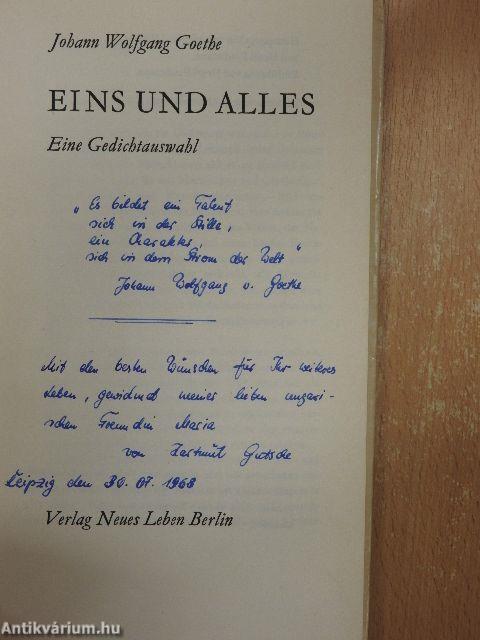 Johann Wolfgang Goethe
EINS UND ALLES
Eine Gedichtauswahl
„Es bildet ein Talent
sich in der Stille,
ein Charakter,
sich in dem Strom der Welt"
Johann Wolfgang v. Goethe
Mit den besten Wünschen für Ihr weiteres
Leben, gewidmet meiner lieben ungari-
schen Freundin Maria
von Hartmut Gutsche
Leipzig den 30.07.1968
Verlag Neues Leben Berlin
Antikvárium.hu